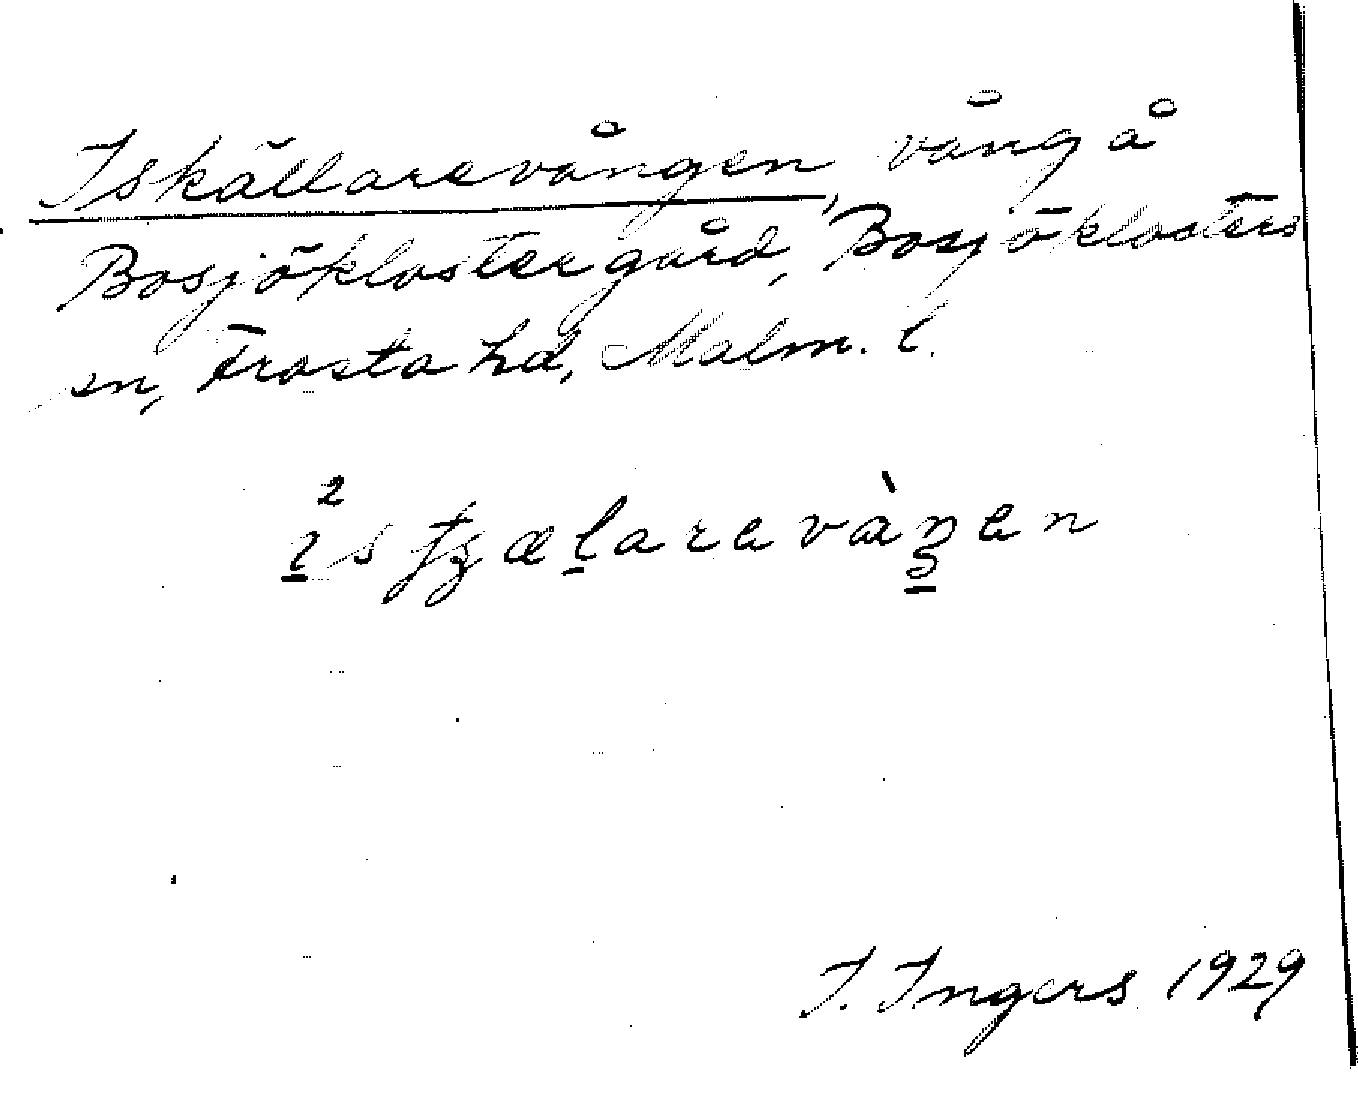 Iskällarevången, vång å
Bosjöklostergård, Bosjöklosters
sn, Frosta hd, Malm. l.
I. Ingers 1929